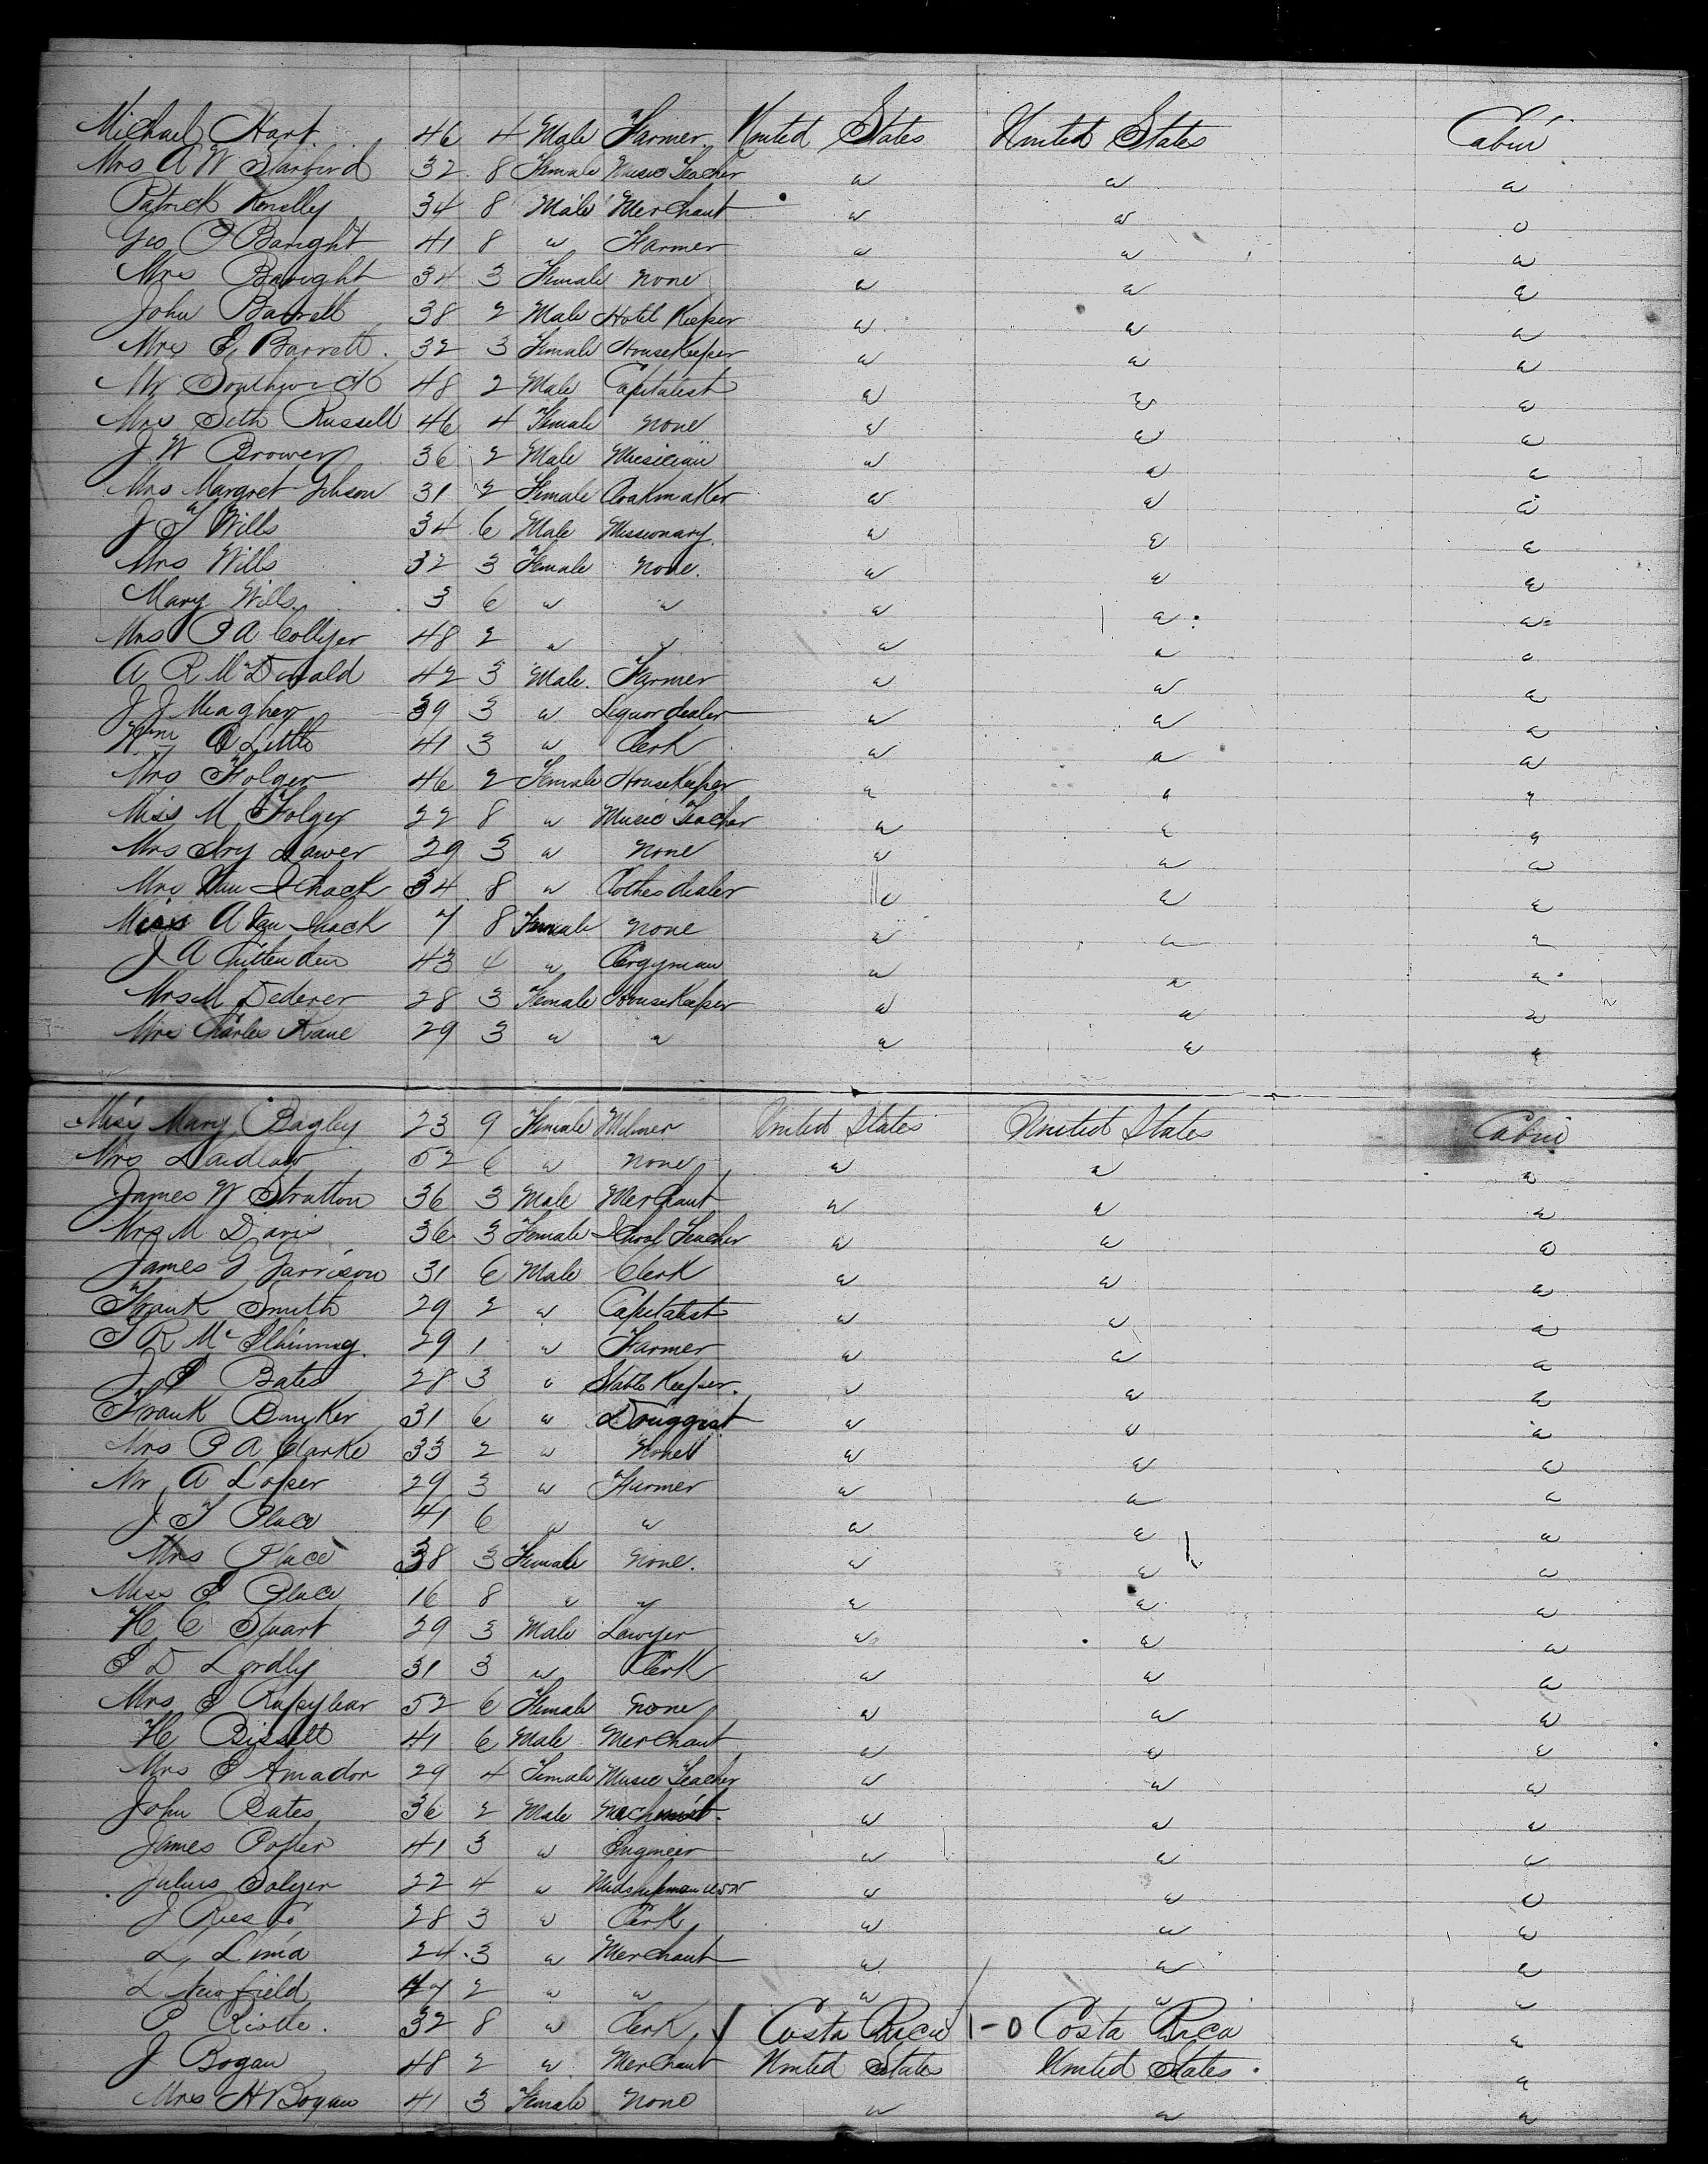 Michael Hart 46 4 Male Farmer United States United States Cabin
Mrs A W Starbird 32 8 Female Music Teacher " " "
Patrick Kenelly 34 8 Male Merchant " " "
Geo P Baright 41 8 " Farmer " " "
Mrs Baright 34 3 Female None " " "
John Barrett 38 2 Male Hotel Keeper " " "
Mrs E Barrett 32 3 Female HouseKeeper " " "
Mr Southwick 48 2 Male Capitalist " " "
Mrs Seth Russell 46 4 Female None " " "
J W Brower 36 2 Male Musician " " "
Mrs Margret Gibson 31 2 Female Cloakmaker " " "
J T Wills 34 6 Male Missionary " " "
Mrs Wills 32 3 Female None " " "
Mary Wills 3 6 " " " " "
Mrs P A Collyer 48 2 " " " " "
A R McDonald 42 3 Male Farmer " " "
J J Meagher 39 3 " Liquor dealer " " "
Wm Little 41 3 " Clerk " " "
Mrs Folger 46 2 Female HouseKeeper " " "
Miss M Folger 22 8 " Music Teacher " " "
Mrs Lawer 29 3 " None " " "
Mrs Van Schack 34 8 " Clothes dealer " " "
Miss A Van Shack 7 8 Female None " " "
J A Chittenden 43 4 " Clergyman " " "
Mrs M Dederer 28 3 Female HouseKeeper " " "
Mrs Charles Kane 29 3 " " " " "
Miss Mary Bagley 23 9 Female Milner United States United States Cabin
Mrs Laidlaw 52 6 " None " " "
James W Stratton 36 3 Male Merchant " " "
Mrs M Davis 36 3 Female School Teacher " " "
James G Garrison 31 6 Male Clerk " " "
Frank Smith 29 2 " Capitalist " " "
R McElhinny 29 1 " Farmer " " "
J P Bates 28 3 " Stable Keeper " " "
Frank Bunker 31 6 " Druggist " " "
Mrs P A Clarke 33 2 " None " " "
Mr A Loper 29 3 " Farmer " " "
J T Place 41 6 " " " " "
Mrs Place 38 3 Female None " " "
Miss E Place 16 8 " " " " "
H C Stuart 29 3 Male Lawyer " " "
E D Lordly 31 3 " Clerk " " "
Mrs E 52 6 Female None " " "
H Bissell 41 6 Male Merchant " " "
Mrs E Amador 29 4 Female Music Teacher " " "
John Bates 36 2 Male Machinist " " "
James Potter 41 3 " Engineer " " "
Julius Salyer 22 4 " Midshipman USN " " "
J 28 3 " Clerk " " "
L Lima 24 3 " Merchant " " "
L Newfield 47 2 " " " " "
P Riotte 32 8 " Clerk Costa Rica 1-0 Costa Rica "
J Bogan 48 2 " Merchant United States United States "
Mrs H Bogan 41 3 Female None " " "